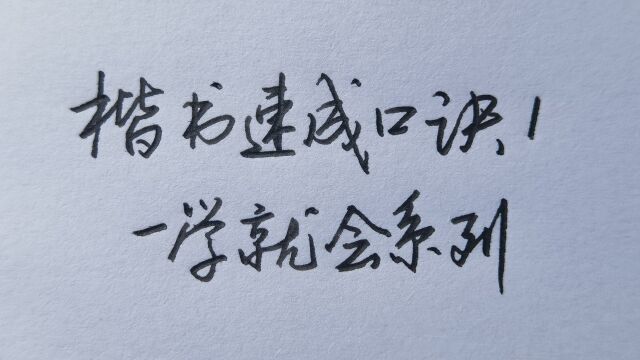 楷书速成口诀1
一学就会系列